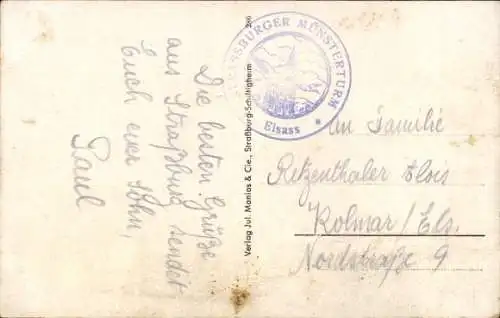 Die besten Grüße
aus Straßburg sendet
Euch euer Sohn,
Paul
286
Verlag Jul. Manias & Cie., Straßburg-Schiltigheim
STRASSBURGER MÜNSTERTURM
Elsass *
An Familie
Retzenthaler Alois
Kolmar/Els.
Nordstraße 9